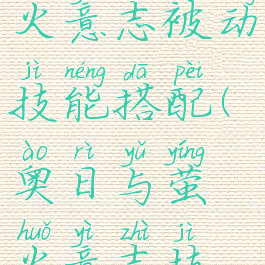 火意志被动
jì néng dā pèi
技能搭配(
ào rì yǔ yíng
奥日与萤
huǒ yì zhì jì
火意志技